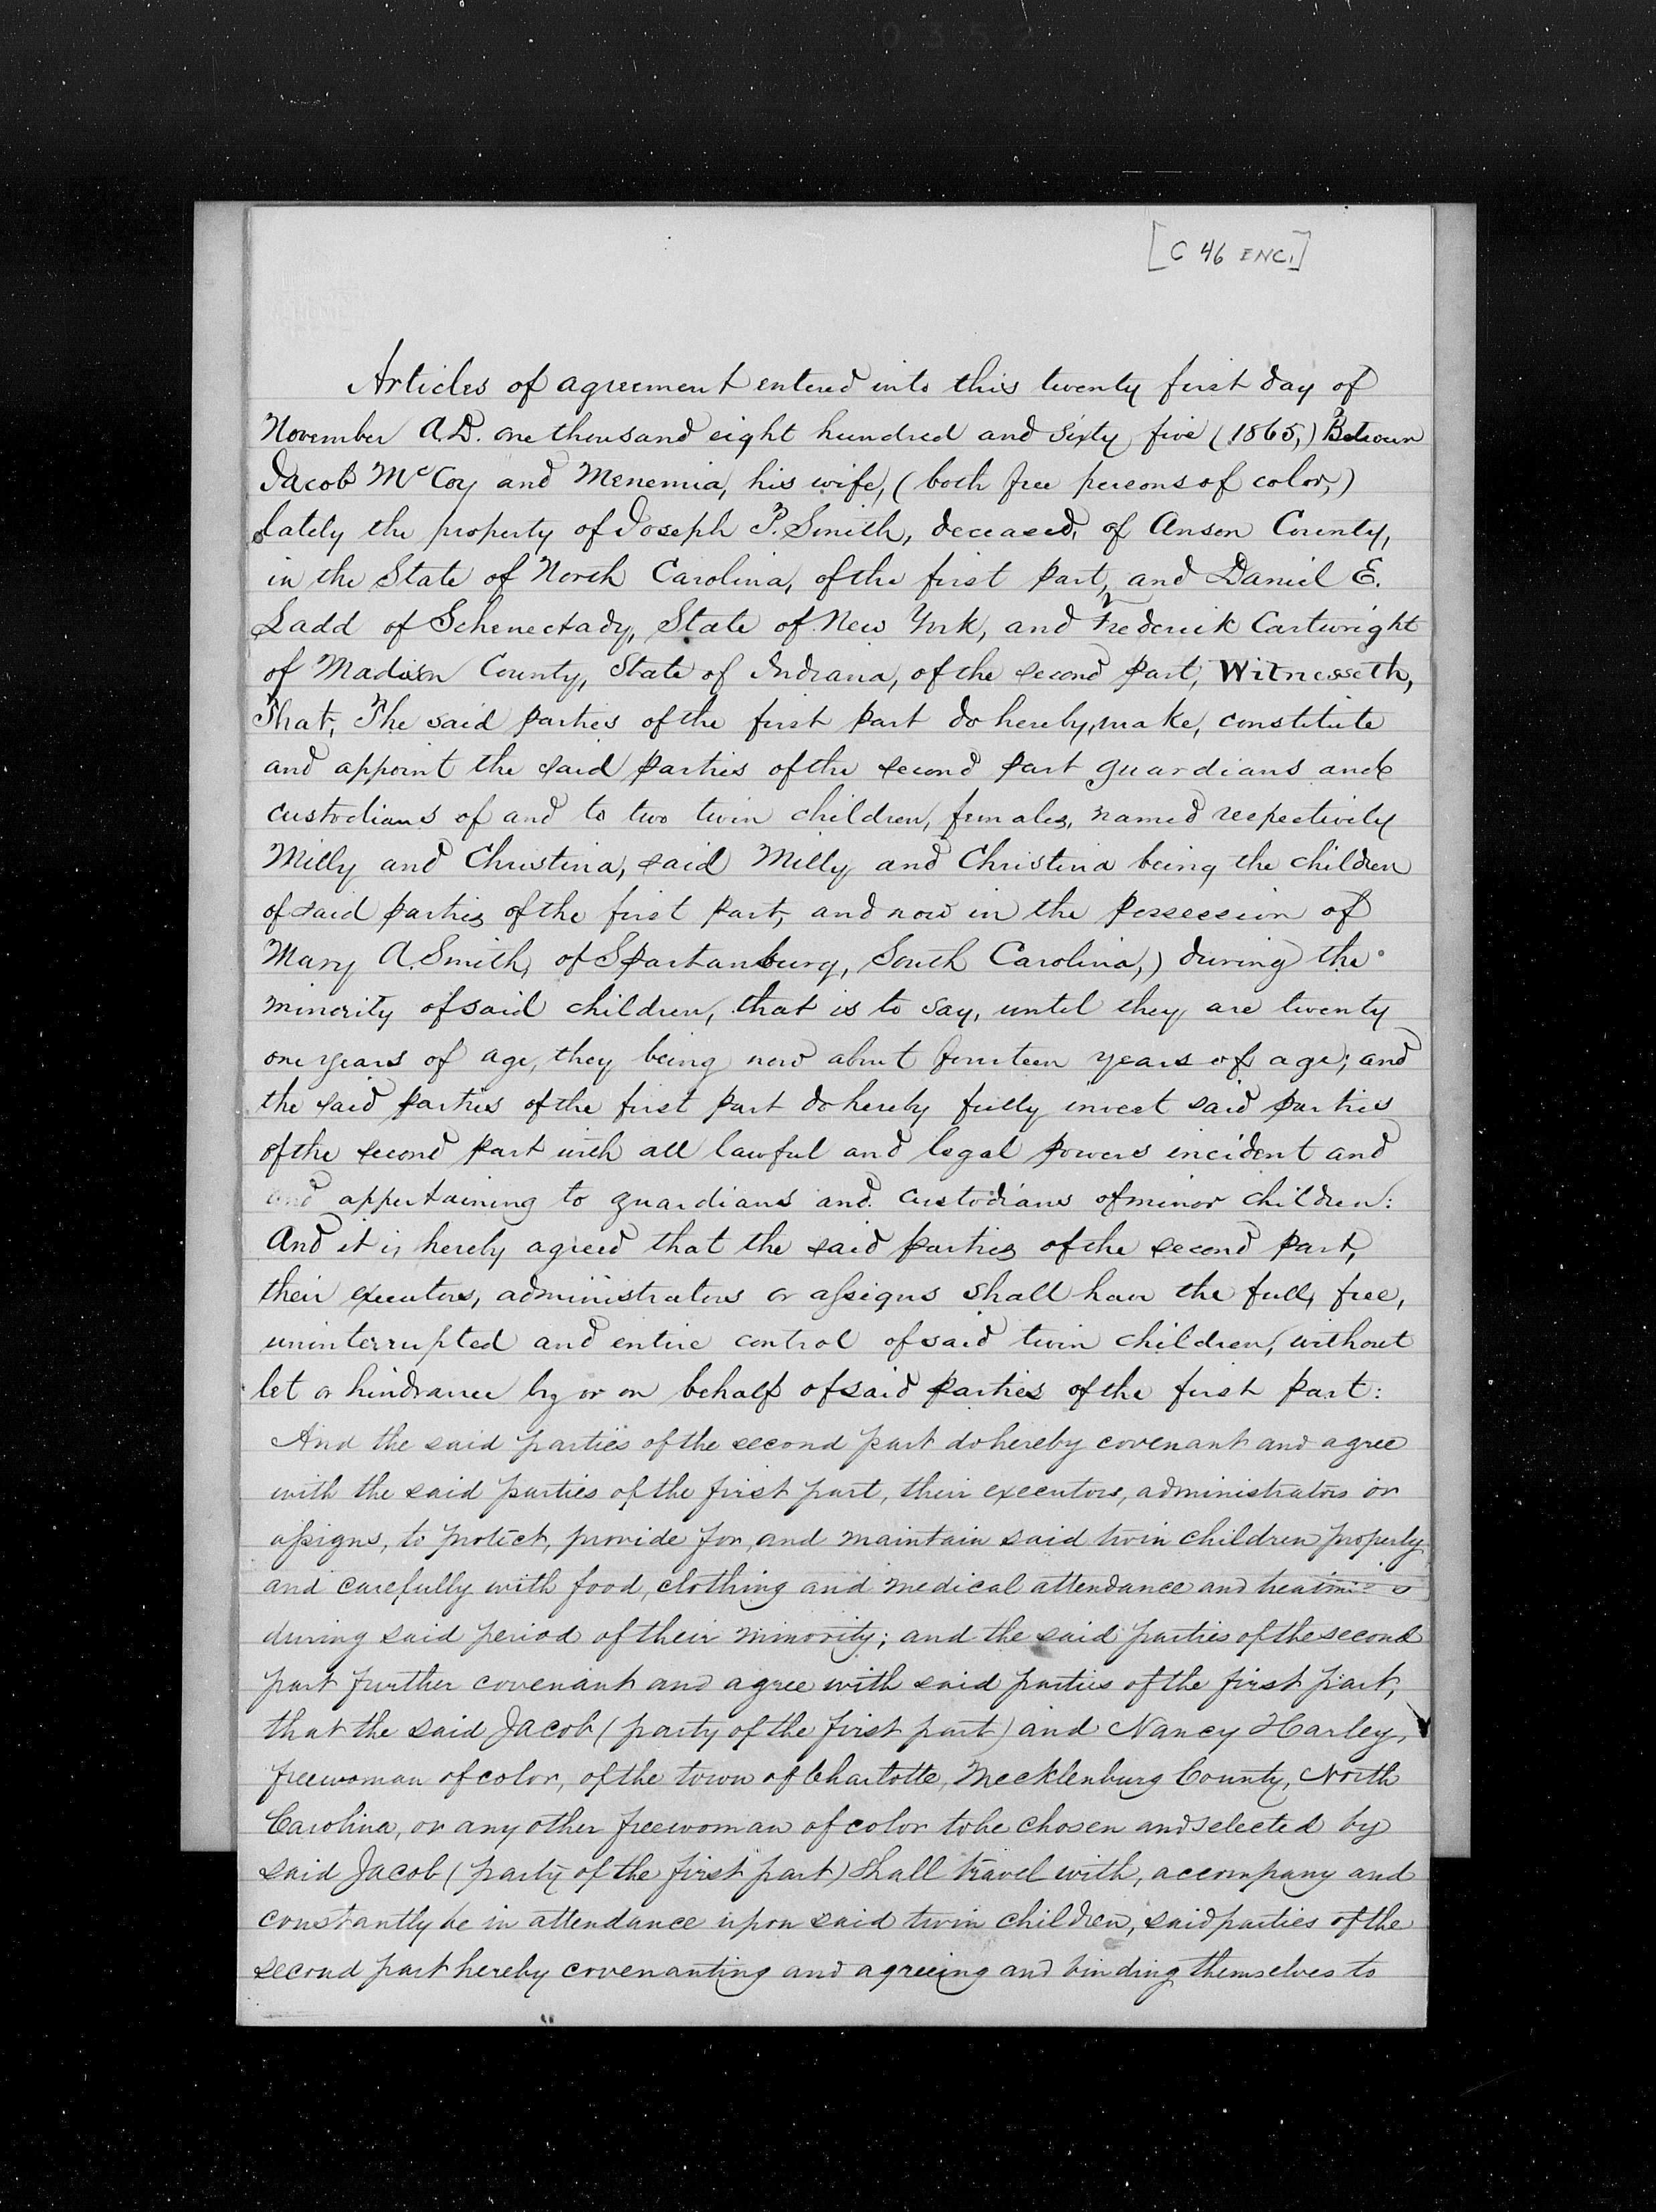 [C 46 ENC.]
Articles of agreement entered into this twenty first day of
November A.D. one thousand eight hundred and sixty five (1865,) Between
Jacob McCoy and Menemia, his wife, (both free persons of color,)
lately the property of Joseph P. Smith, deceased, of Anson County,
in the State of North Carolina, of the first part, and Daniel E.
Ladd of Schenectady, State of New York, and Frederick Cartwright
of Madison County, State of Indiana, of the second part, Witnesseth,
That, The said parties of the first part do hereby, make, constitute
and appoint the said parties of the second part guardians and
custodians of and to two twin children, females, named respectively
Milly and Christina, said Milly and Christina being the children
of said parties of the first part, and now in the possession of
Mary A. Smith, of Spartanburg, South Carolina,) during the
minority of said children, that is to say, until they are twenty
one years of age, they being now about fourteen years of age; and
the said parties of the first part do hereby fully invest said parties
of the second part with all lawful and legal powers incident and
and appertaining to guardians and custodians of minor children:
And it is hereby agreed that the said parties of the second part,
their executors, administrators or assigns shall have the full, free,
uninterrupted and entire control of said twin children, without
let or hindrance by or on behalf of said parties of the first part:
And the said parties of the second part do hereby covenant and agree
with the said parties of the first part, their executors, administrators or
assigns, to protect, provide for, and maintain said twin children properly
and carefully with food, clothing and medical attendance and
during said period of their minority; and the said parties of the second
part further covenant and agree with said parties of the first part,
that the said Jacob (party of the first part) and Nancy Harley,
freewoman of color, of the town of Charlotte, Mecklenburg County, North
Carolina, or any other freewoman of color to be chosen and selected by
said Jacob (party of the first part) shall travel with, accompany and
constantly be in attendance upon said twin children, said parties of the
second part hereby covenanting and agreeing and binding themselves to